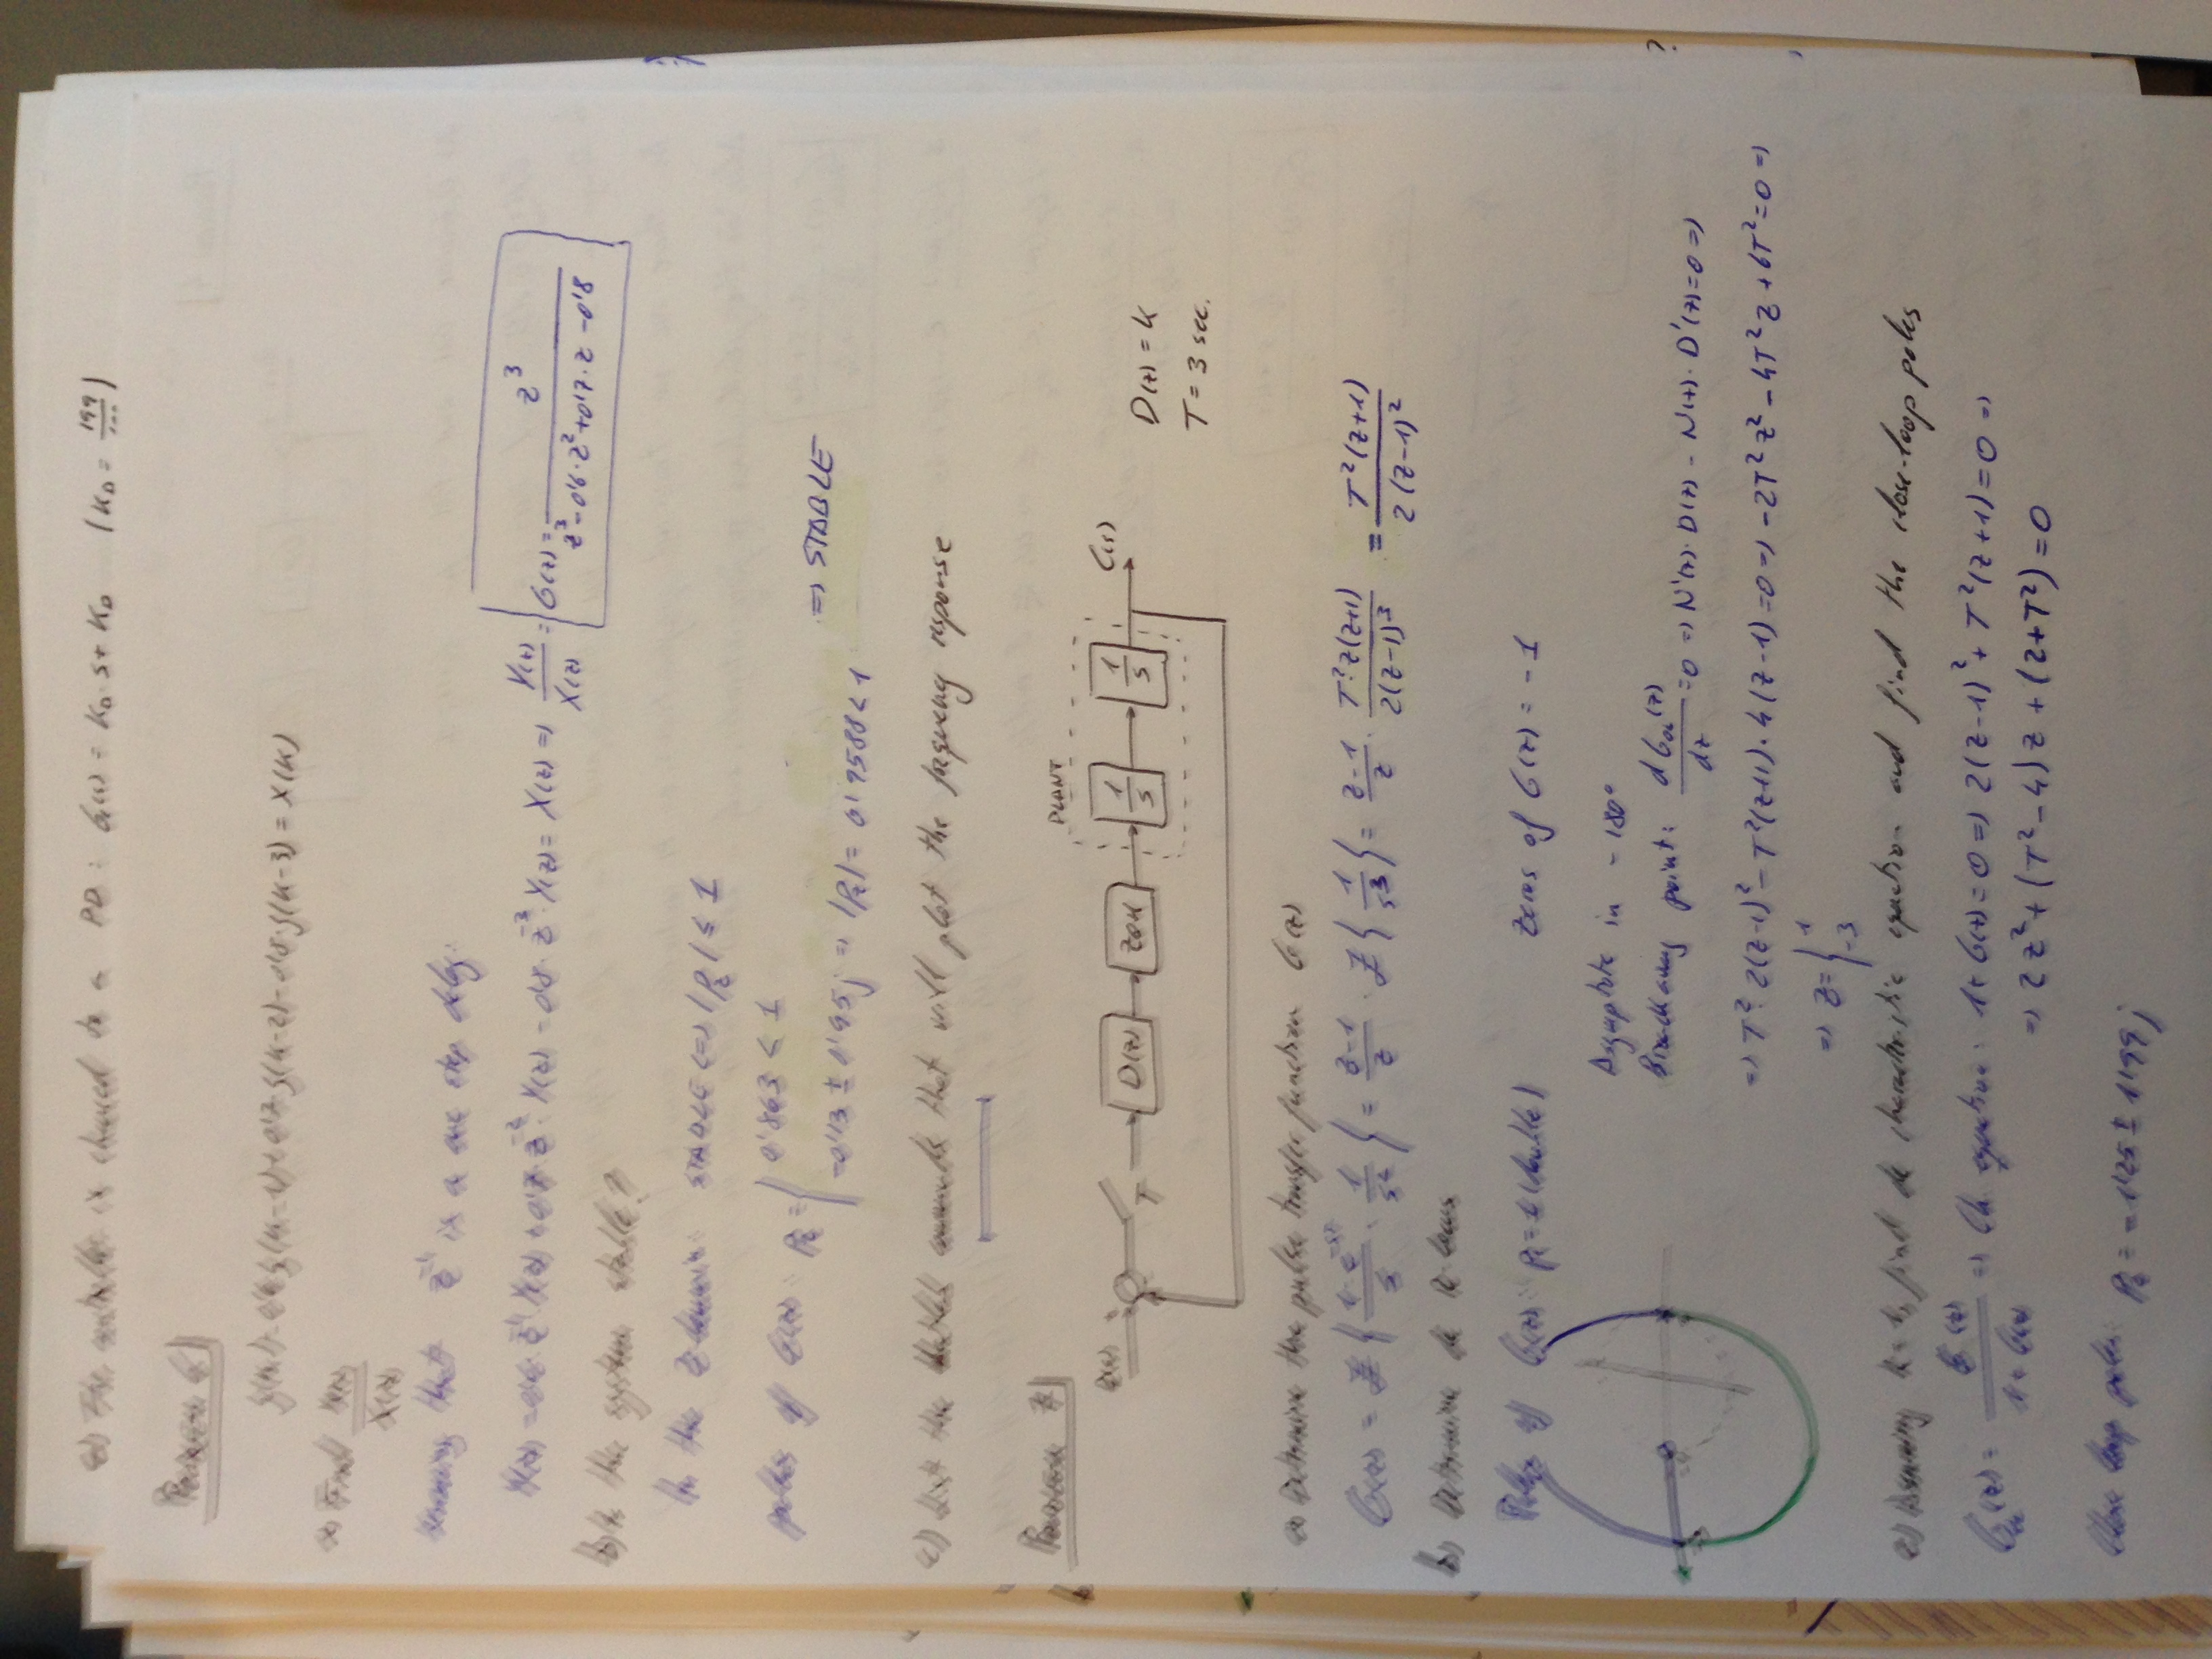 c) The controller is changed to a PD: G(s) = KD·s + KD (KD = 199/100)
Problem 6
y(k) - 0'6 y(k-1) + 0'7 y(k-2) - 0'8·y(k-3) = X(K)
a) Find Y(z)/X(z)
that z^-1 is a one step delay:
Y(z) - 0'6 · z^-1 Y(z) + 0'7 · z^-2 · Y(z) - 0'8 · z^-3 · Y(z) = X(z) => Y(z)/X(z) = G(z) = z^3/(z^3 - 0'6·z^2 + 0'7·z - 0'8)
b) Is the system stable?
In the z-domain: STABLE <=> |Pz| ≤ 1
poles of G(z): Pz = { 0'863 < 1
-0'13 ± 0'95j => |Pz| = 0'9588 < 1 => STABLE
c) List the Matlab commands that will plot the frequency response
Problem 7
PLANT
R(s) + - T D(z) ZOH 1/s 1/s C(s)
D(z) = K
T = 3 sec.
a) Determine the pulse transfer function G(z)
G(z) = Z{(1-e^-sT)/s · 1/s^2} = (z-1)/z · Z{1/s^3} = (z-1)/z · T^2·z(z+1)/2(z-1)^3 = T^2(z+1)/2(z-1)^2
b) Determine de R-locus
Poles of G(z): Pz = 1 (double) Zeros of G(z) = -1
Asymptote in -180°
Breakaway point: dGol(z)/dz = 0 => N'(z)·D(z) - N(z)·D'(z) = 0 =>
=> T^2·2(z-1)^2 - T^2(z+1)·4(z-1) = 0 => -2T^2z^2 - 4T^2z + 6T^2 = 0 =>
=> z = { 1
-3
?
c) Assuming K = 1, find de characteristic equation and find the close-loop poles
Gcl(z) = G(z)/(1+G(z)) => Ch equation: 1+G(z) = 0 => 2(z-1)^2 + T^2(z+1) = 0 =>
=> 2z^2 + (T^2-4)z + (2+T^2) = 0
Close loop poles: Pz = -1'25 ± 1'99j